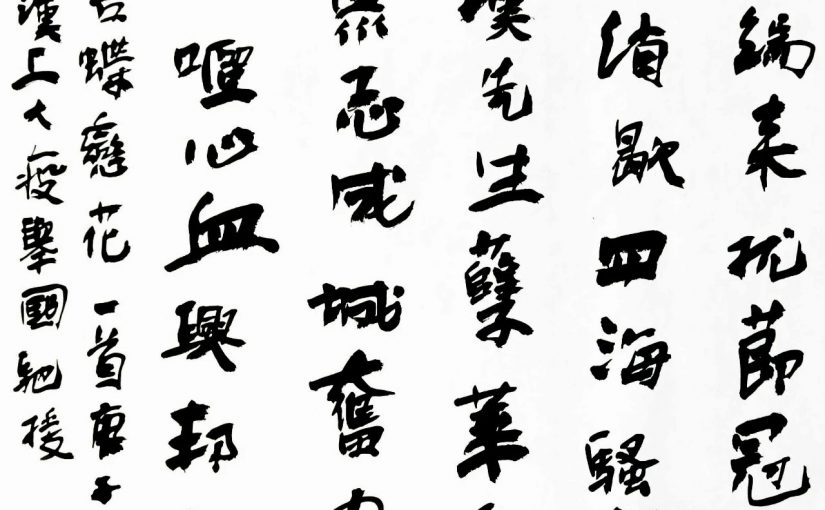 端来扰節冠
歇四海騷
先生孽
眾志成城奮
嘔心血興邦
蝶戀花一首庚子
漢上大疫舉國馳援